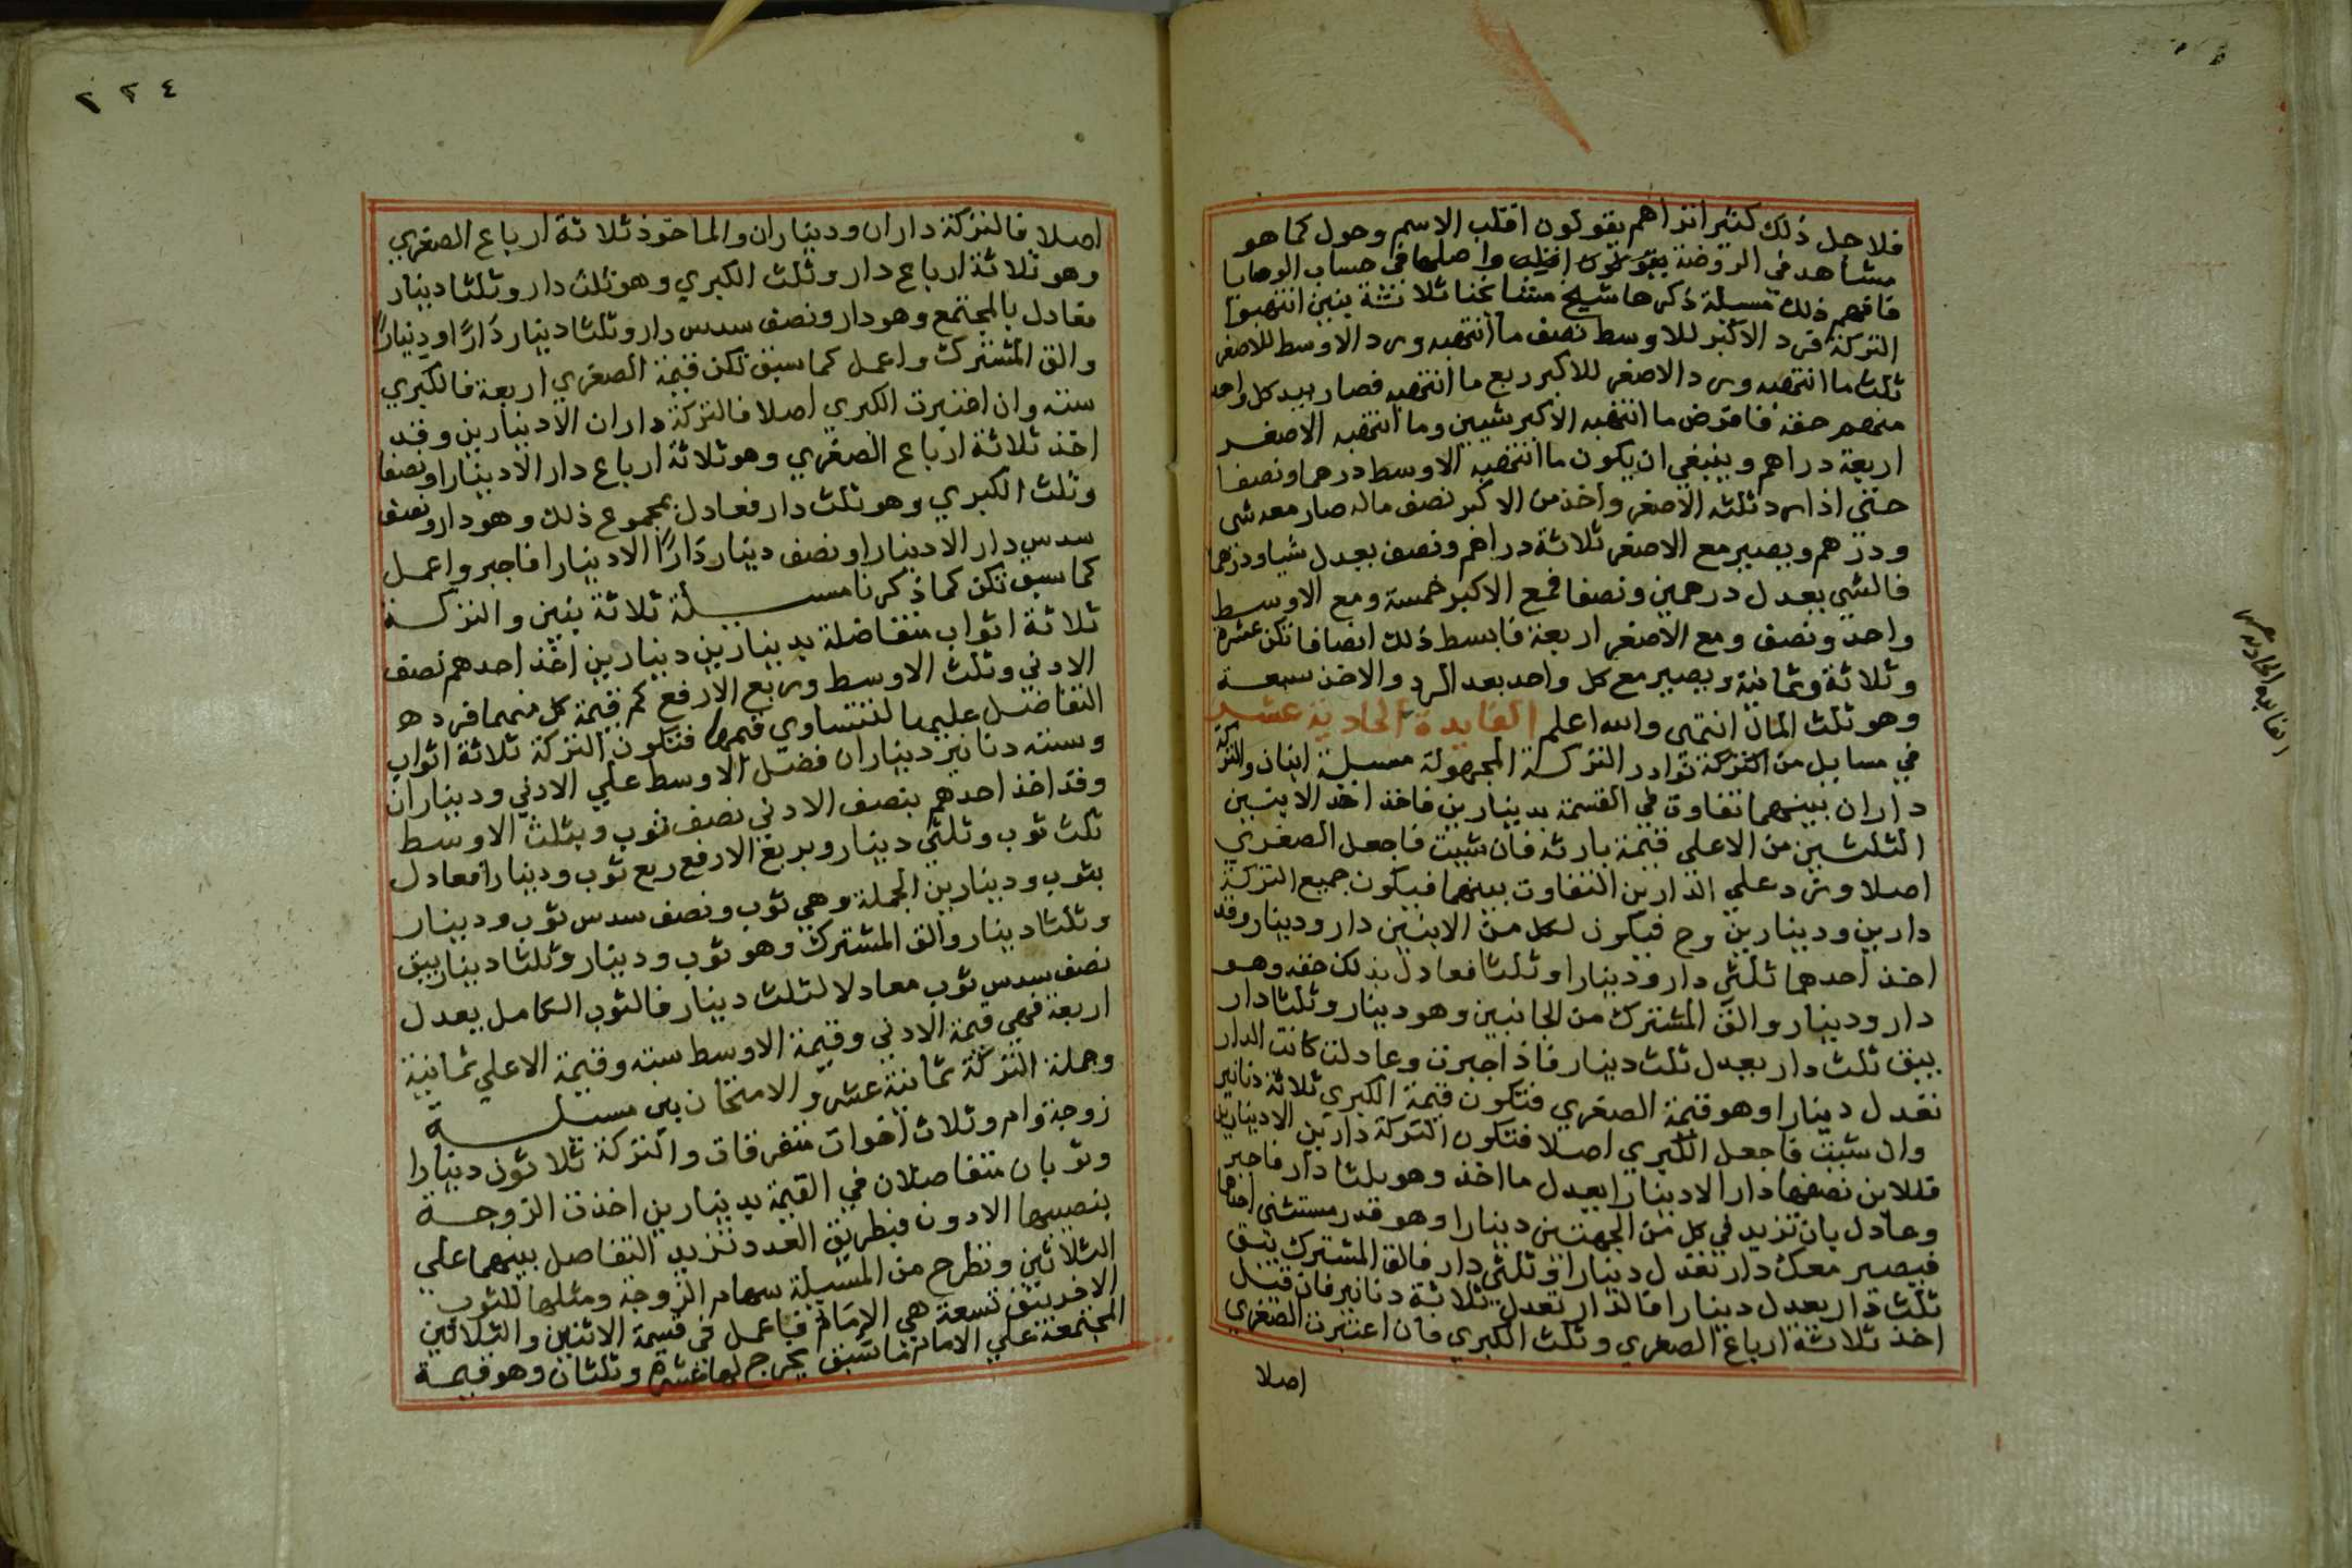 فلاجل ذلك كثيرا تراهم يقولون اقلب الاسم وحول كما هو
مشاهد في الروضة يقولون واصلها في حساب الوصايا
فافهم ذلك مسيلة ذكرها شيخ مشايخنا ثلاثة بنين انتهبوا
التركة فرد الاكبر للاوسط نصف ما انتهبه ورد الاوسط للاصغر
ثلث ما انتهبه ورد الاصغر للاكبر ربع ما انتهبه فصار بيد كل واحد
منهم حقه فافرض ما انتهبه الاكبر شيين وما انتهبه الاصغر
اربعة دراهم وينبغي ان يكون ما انتهبه الاوسط درهما ونصفا
حتي اذا رد ثلثه الاصغر واخذ من الاكبر نصف ماله صار معه شي
ودرهم ويصير مع الاصغر ثلاثة دراهم ونصف يعدل شيا ودرهما
فالشي يعدل درهمين ونصفا فمع الاكبر خمسة ومع الاوسط
واحد ونصف ومع الاصغر اربعة فابسط ذلك انصافا تكن عشرة
وثلاثة وثمانية ويصير مع كل واحد بعد الرد والاخذ سبعة
وهو ثلث المال انتهى والله اعلم الفايدة الحادية عشر
في مسايل من التركة نوادر التركة المجهولة مسيلة ابنان والتركة
داران بينهما تفاوت في القسمة بدينارين فاخذ احد الابنين
الثلثين من الاعلي قيمة بارثه فان شيت فاجعل الصغري
اصلا وزد علي الدارين التفاوت بينهما فيكون جميع التركة
دارين ودينارين وح فيكون لكل من الابنين دار ودينار وقد
اخذ احدهما ثلثي دار ودينارا وثلثا فعادل بذلك حقه وهو
دار ودينار والق المشترك من الجانبين وهو دينار وثلثا دار
يبق ثلث دار يعدل ثلث دينار فاذا جبرت وعادلت كانت الدار
تعدل دينارا وهو قيمة الصغري فتكون قيمة الكبري ثلاثة دنانير
وان شيت فاجعل الكبري اصلا فتكون التركة دارين الا دينارين
فللابن نصفها دار الا دينارا يعدل ما اخذ وهو ثلثا دار فاجبر
وعادل بان تزيد في كل من الجهتين دينارا وهو قدر مستثنى احدها
فيصير معك دار تعدل دينارا وثلثي دار فالق المشترك يبق
ثلث دار يعدل دينارا فالدار تعدل ثلاثة دنانير فان قيل
اخذ ثلاثة ارباع الصغري وثلث الكبري فان اعتبرت الصغري
اصلا
الفايدة الحادية عشر
٢٢٤
اصلا فالتركة داران وديناران والماخوذ ثلاثة ارباع الصغري
وهو ثلاثة ارباع دار وثلث الكبري وهو ثلث دار وثلثا دينار
فعادل بالمجتمع وهو دار ونصف سدس دار وثلثا دينار دارًا ودينارًا
والق المشترك واعمل كما سبق تكن قيمة الصغري اربعة فالكبري
سته وان اعتبرت الكبري اصلا فالتركة داران الا دينارين وقد
اخذ ثلاثة ارباع الصغري وهو ثلاثة ارباع دار الا دينارا ونصفا
وثلث الكبري وهو ثلث دار فعادل بمجموع ذلك وهو دار ونصف
سدس دار الا دينارا ونصف دينار دارًا الا دينارا فاجبر واعمل
كما سبق تكن كما ذكرنا مسيلة ثلاثة بنين والتركة
ثلاثة اثواب متفاضلة بدينارين دينارين اخذ احدهم نصف
الادني وثلث الاوسط وربع الارفع كم قيمة كل منهما فزد هو
التفاضل عليها لتتساوى قيمها فتكون التركة ثلاثة اثواب
وسته دنانير ديناران فضل الاوسط علي الادني وديناران
وقد اخذ احدهم بنصف الادني نصف ثوب وبثلث الاوسط
ثلث ثوب وثلثي دينار وبربع الارفع ربع ثوب ودينارا فعادل
بثوب ودينارين الجملة وهي ثوب ونصف سدس ثوب ودينار
وثلثا دينار والق المشترك وهو ثوب ودينار وثلثا دينار يبق
نصف سدس ثوب معادلا لثلث دينار فالثوب الكامل يعدل
اربعة فهي قيمة الادني وقيمة الاوسط سته وقيمة الاعلي ثمانية
وجملة التركة ثمانية عشر والامتحان بين مسيلة
زوجة وام وثلاث اخوات متفرقات والتركة ثلاثون دينارا
وثوبان متفاضلان في القيمة بدينارين اخذت الزوجة
بنصيبها الادون فبطريق العدد تزيد التفاضل بينهما علي
الثلاثين وتطرح من المسيلة سهام الزوجة ومثلها للثوب
الاخر يبق تسعة هي الامام فاعمل في قسمة الاثنين والثلاثين
المجتمعة علي الامام ما سبق يخرج لها عشرة وثلثان وهو قيمة